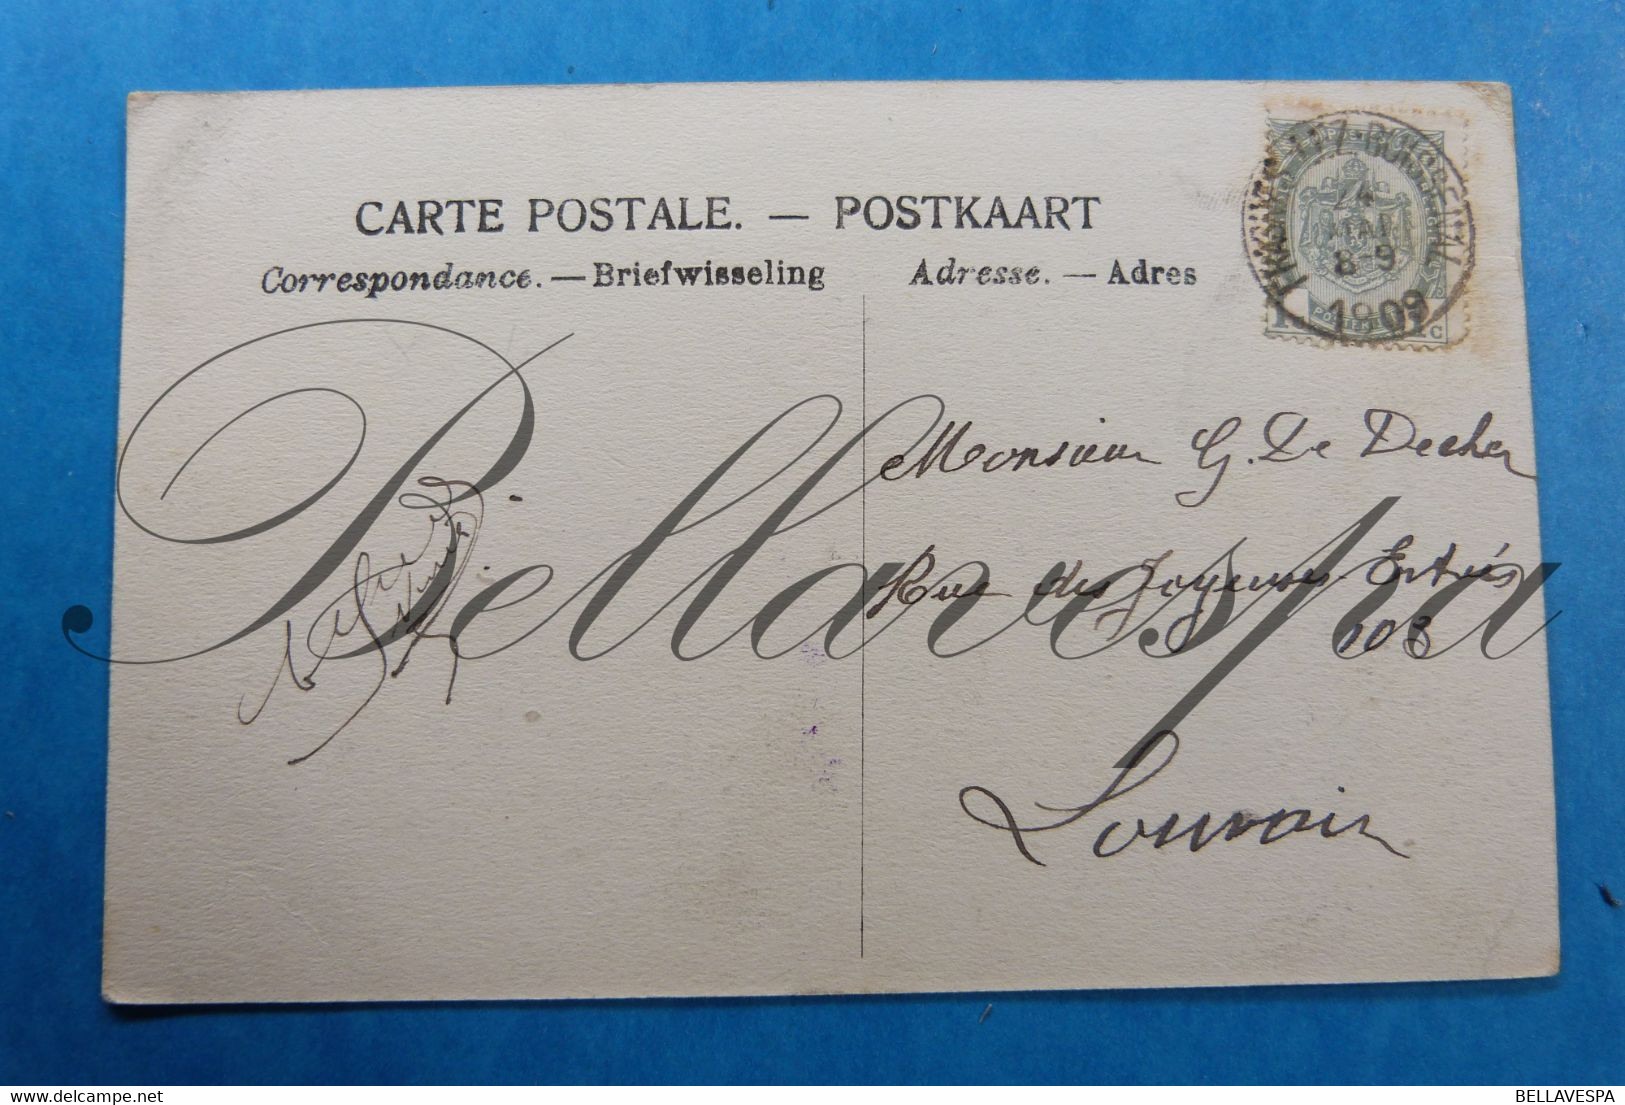 CARTE POSTALE. — POSTKAART
Correspondance. — Briefwisseling
Adresse. — Adres
24
MAI
8-9
1909
Monsieur G. De Decker
Rue des Joyeuses-Entrées
103
Louvain
Bellavespa
BELLAVESPA